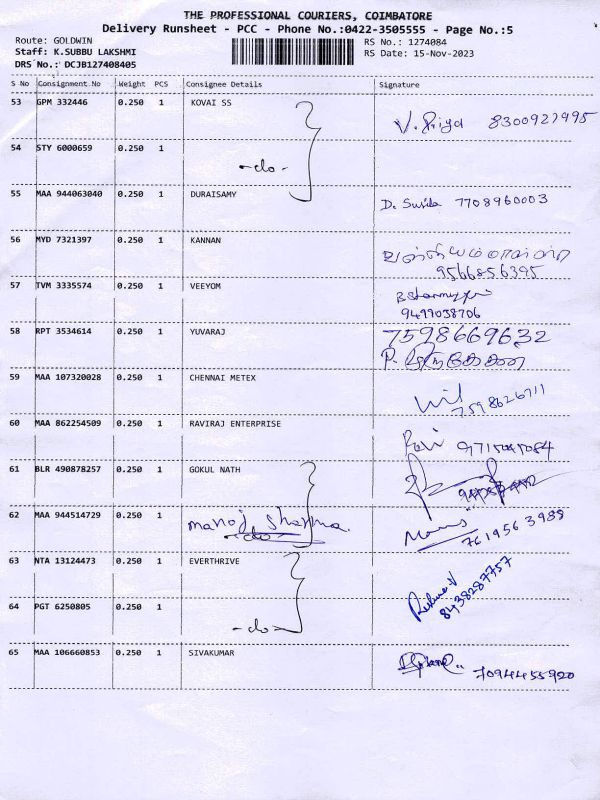 THE PROFESSIONAL COURIERS, COIMBATORE
Delivery Runsheet - PCC - Phone No.:0422-3505555 - Page No.:5
Route: GOLDWIN RS No.: 1274084
Staff: K.SUBBU LAKSHMI RS Date: 15-Nov-2023
DRS No.: DCJB127408405
S No Consignment No Weight PCS Consignee Details Signature
53 GPM 332446 0.250 1 KOVAI SS V. Priya 8300927995
54 STY 6000659 0.250 1 -do-
55 MAA 944063040 0.250 1 DURAISAMY D. 7708960003
56 MYD 7321397 0.250 1 KANNAN
9566856395
57 TVM 3335574 0.250 1 VEEYOM
9499038706
58 RPT 3534614 0.250 1 YUVARAJ 7598669632
P.
59 MAA 107320028 0.250 1 CHENNAI METEX
7598626711
60 MAA 862254509 0.250 1 RAVIRAJ ENTERPRISE Ravi
61 BLR 490878257 0.250 1 GOKUL NATH
62 MAA 944514729 0.250 1 manoj sharma. 7619563988
-do-
63 NTA 13124473 0.250 1 EVERTHRIVE
8438287757
64 PGT 6250805 0.250 1 -do-
65 MAA 106660853 0.250 1 SIVAKUMAR 7094455920